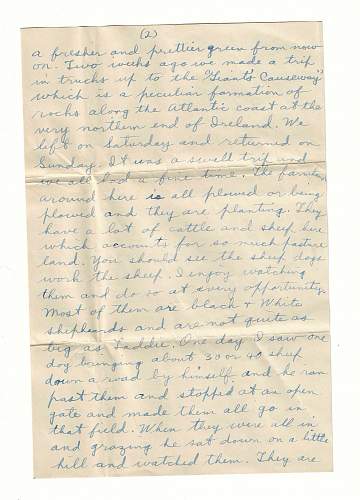 (2)
a fresher and prettier green from now
on. Two weeks ago we made a trip
in trucks up to the "Giant's Causeway"
which is a peculiar formation of
rocks along the Atlantic coast at the
very northern end of Ireland. We
left on Saturday and returned on
Sunday. It was a swell trip and
we all had a fine time. The farmland
around here is all plowed or being
plowed and they are planting. They
have a lot of cattle and sheep here
which accounts for so much pasture
land. You should see the sheep dogs
work the sheep. I enjoy watching
them and do so at every opportunity.
Most of them are black & White
shepheards and are not quite as
big as Laddie. One day I saw one
dog bringing about 30 or 40 sheep
down a road by himself, and he ran
past them and stopped at an open
gate and made them all go in
that field. When they were all in
and grazing he sat down on a little
hill and watched them. They are